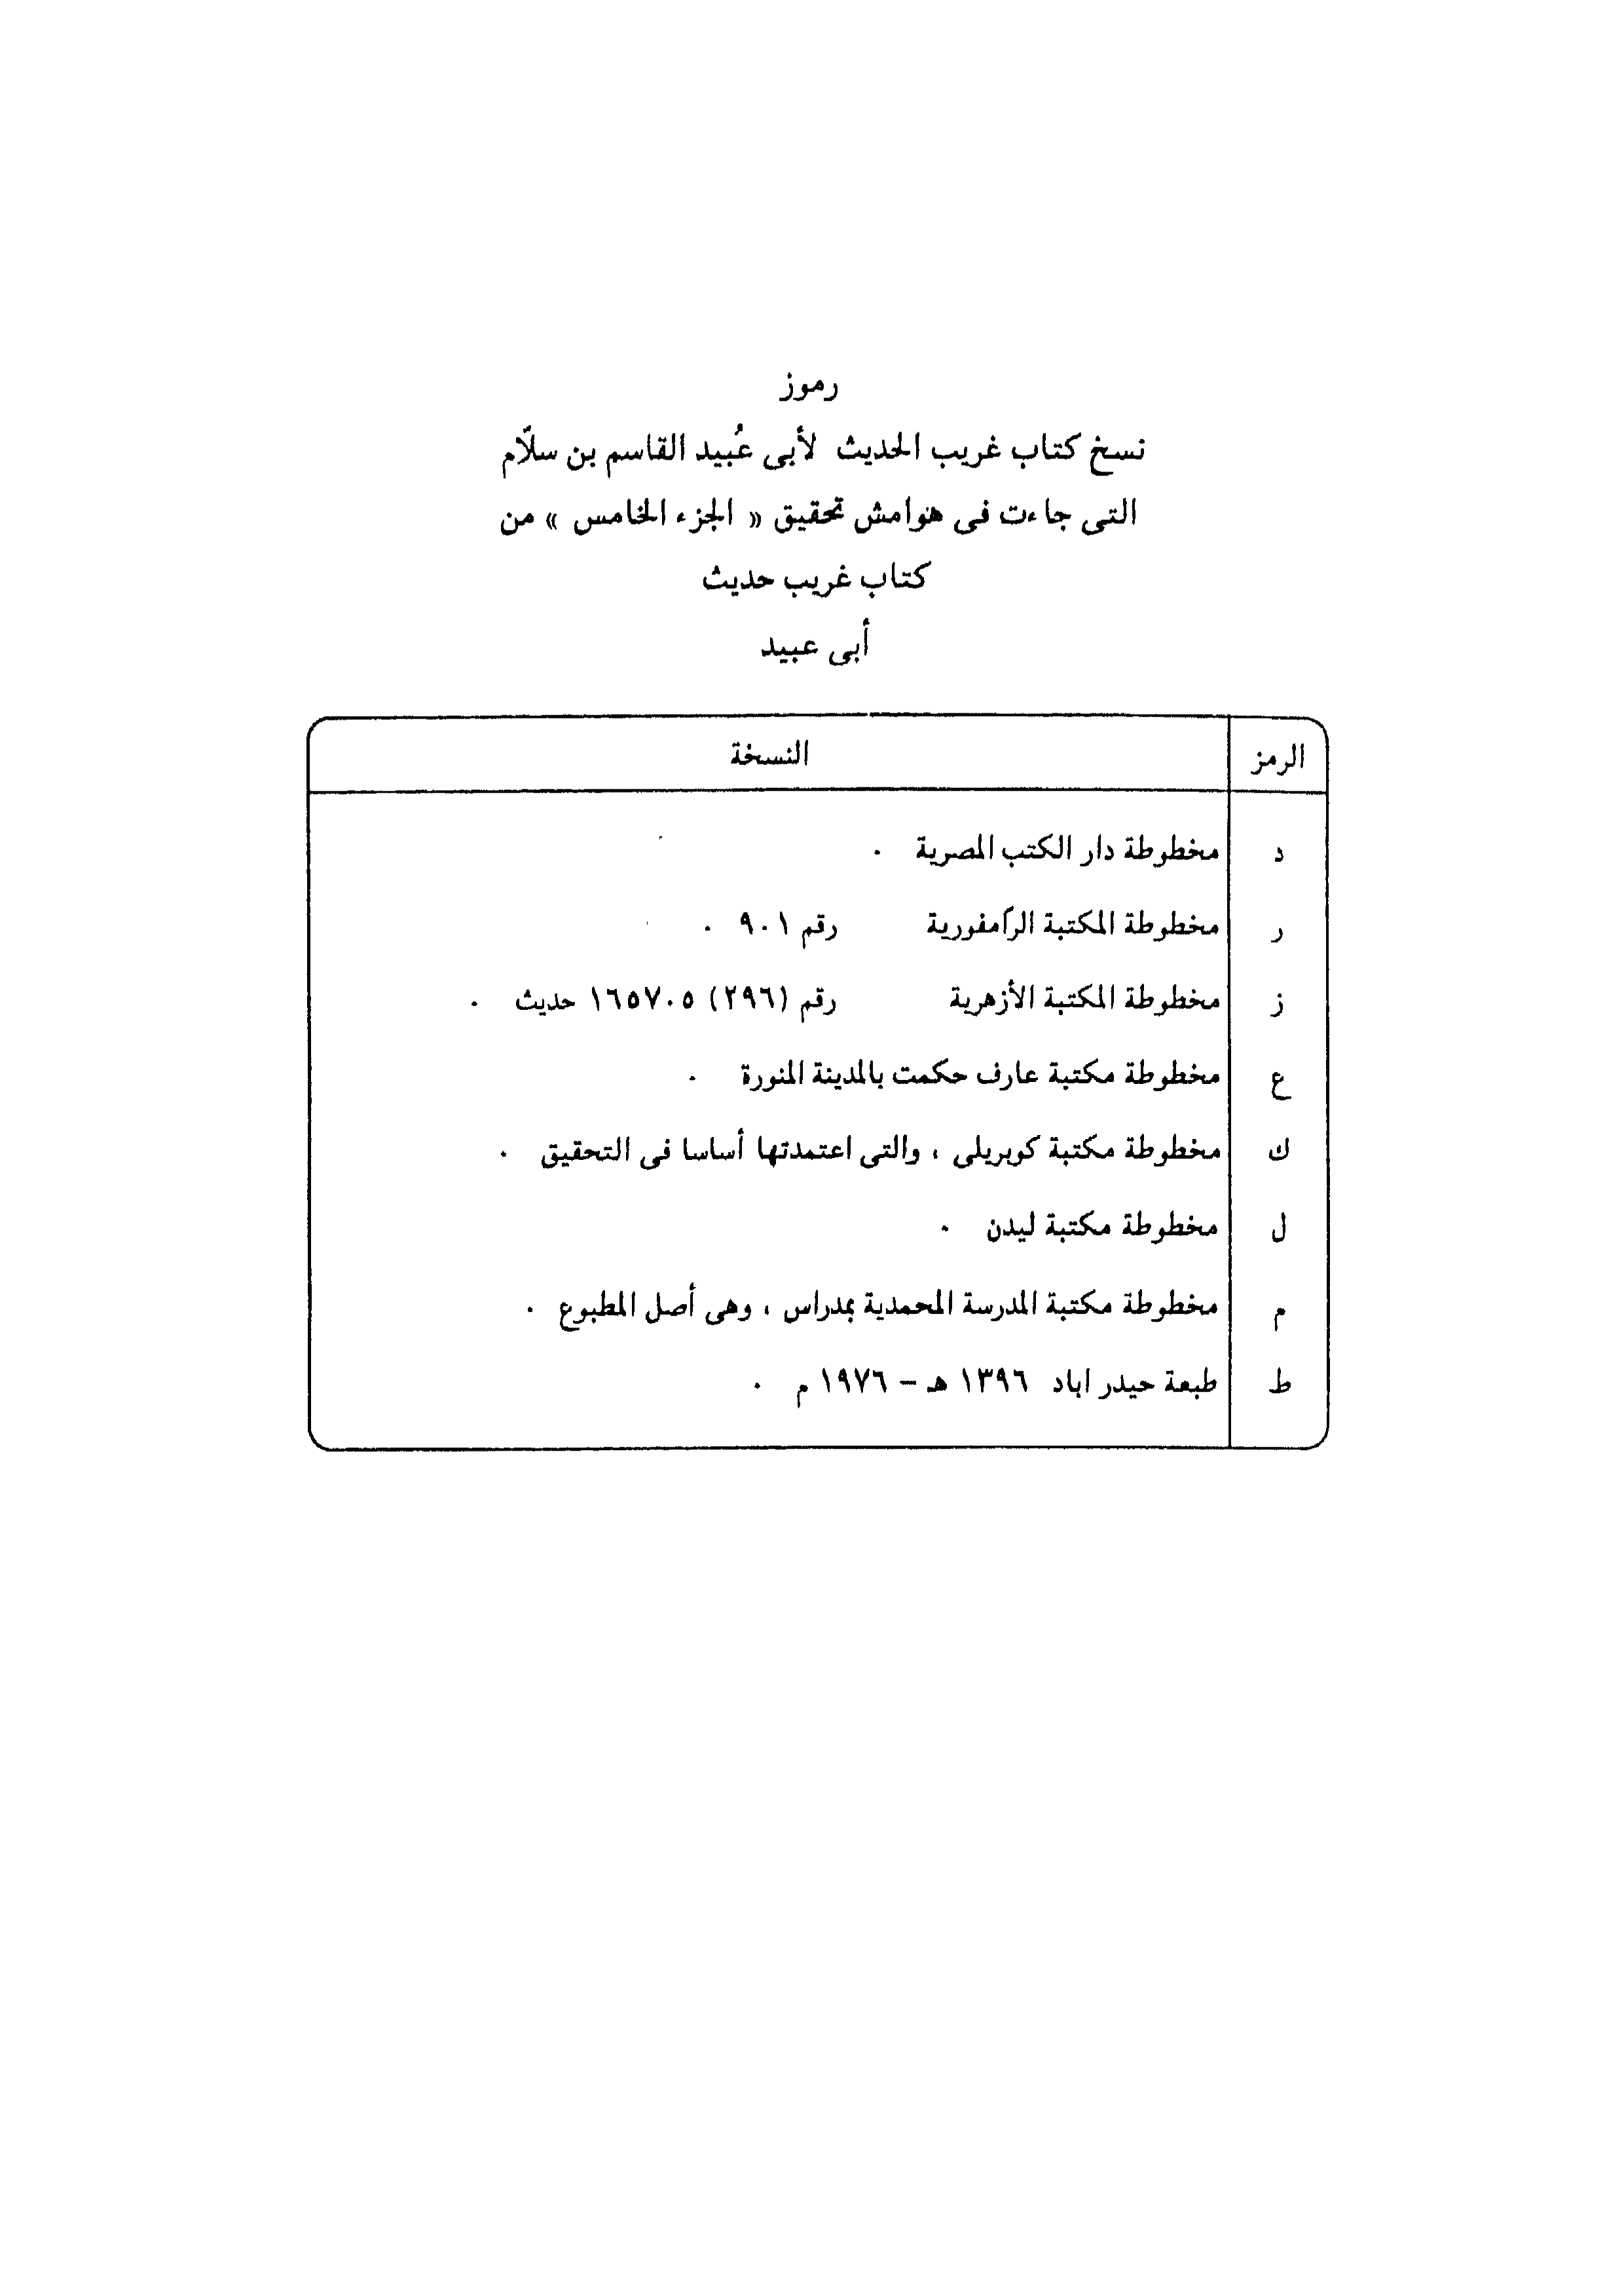 رموز
نسخ كتاب غريب الحديث لأبى عُبيد القاسم بن سلاّم
التى جاءت فى هوامش تحقيق « الجزء الخامس » من
كتاب غريب حديث
أبى عبيد
الرمز النسخة
د مخطوطة دار الكتب المصرية .
ر مخطوطة المكتبة الرامفورية رقم ٩٠١ .
ز مخطوطة المكتبة الأزهرية رقم (٢٩٦) ١٦٥٧٠٥ حديث .
ع مخطوطة مكتبة عارف حكمت بالمدينة المنورة .
ك مخطوطة مكتبة كوبريلى ، والتى اعتمدتها أساسا فى التحقيق .
ل مخطوطة مكتبة ليدن .
م مخطوطة مكتبة المدرسة المحمدية بمدراس ، وهى أصل المطبوع .
ط طبعة حيدر اباد ١٣٩٦ هـ – ١٩٧٦ م .